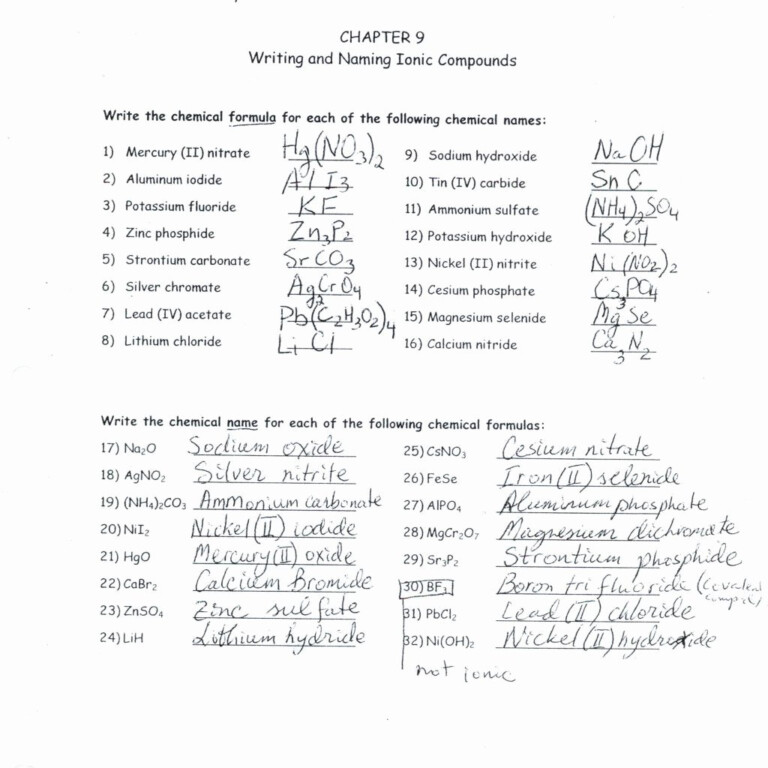 CHAPTER 9
Writing and Naming Ionic Compounds
Write the chemical formula for each of the following chemical names:
1) Mercury (II) nitrate Hg(NO3)2
2) Aluminum iodide AlI3
3) Potassium fluoride KF
4) Zinc phosphide Zn3P2
5) Strontium carbonate SrCO3
6) Silver chromate Ag2CrO4
7) Lead (IV) acetate Pb(C2H3O2)4
8) Lithium chloride LiCl
9) Sodium hydroxide NaOH
10) Tin (IV) carbide SnC
11) Ammonium sulfate (NH4)2SO4
12) Potassium hydroxide KOH
13) Nickel (II) nitrite Ni(NO2)2
14) Cesium phosphate Cs3PO4
15) Magnesium selenide MgSe
16) Calcium nitride Ca3N2
Write the chemical name for each of the following chemical formulas:
17) Na2O Sodium oxide
18) AgNO2 Silver nitrite
19) (NH4)2CO3 Ammonium carbonate
20) NiI2 Nickel (II) iodide
21) HgO Mercury (II) oxide
22) CaBr2 Calcium Bromide
23) ZnSO4 Zinc sulfate
24) LiH Lithium hydride
25) CsNO3 Cesium nitrate
26) FeSe Iron (II) selenide
27) AlPO4 Aluminum phosphate
28) MgCr2O7 Magnesium dichromate
29) Sr3P2 Strontium phosphide
30) BF3 Boron trifluoride (Covalent
compound)
31) PbCl2 Lead (II) chloride
32) Ni(OH)2 Nickel (II) hydroxide
not ionic